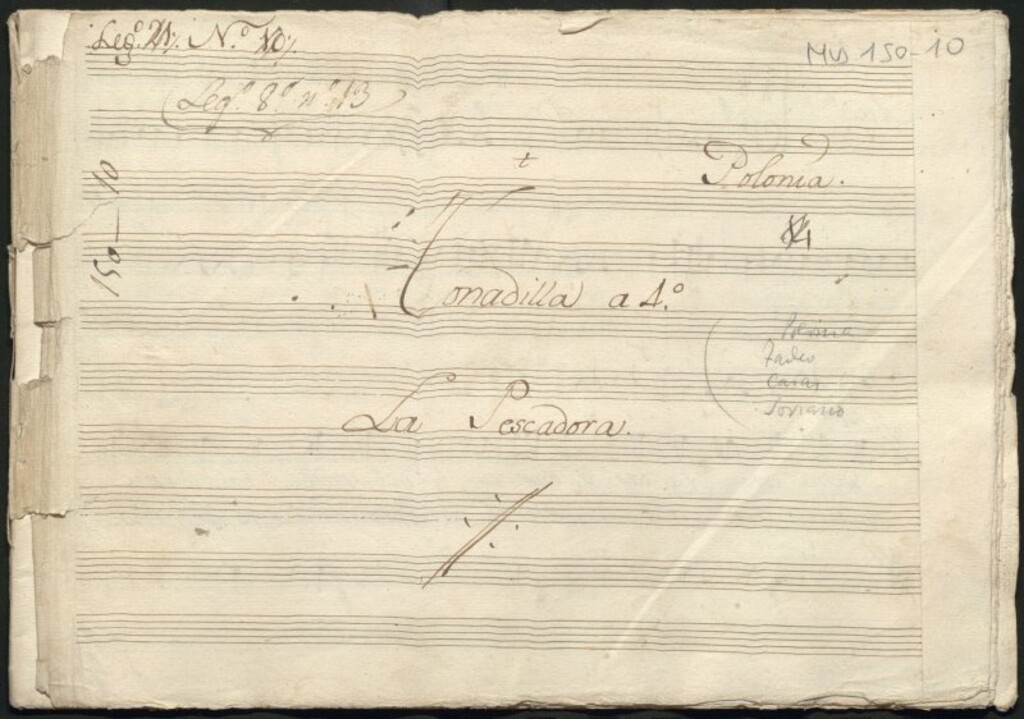 Leg.º 21. N.º 10.
MUS 150-10
(Leg.º 8.º n.º 13)
150-10
Polonia.
Tonadilla a 4.º
La Pescadora.
Polonia
Tadeo
Casas
Soriano